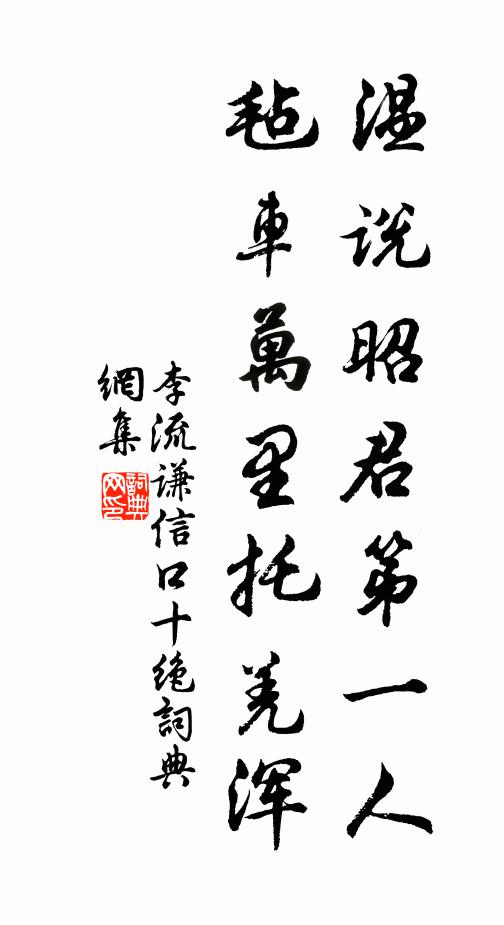 温说昭君第一人
毡車萬里托羌浑
李流谦信口十绝詞典
網集
詞典
网印